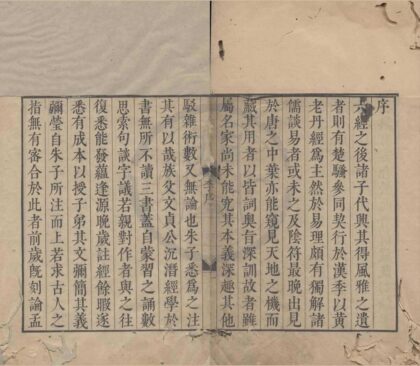 序
六經之後諸子代興其得風雅之遺
者則有楚騷參同契行於漢季以黃
老丹經爲主然於易理頗有獨解諸
儒談易者或未之及陰符最晚出見
於唐之中葉亦能窺見天地之機而
藏其用者以皆詞奥音深訓故者雖
屬名家尚未能究其本義深趣其他
駁雜術數又無論也朱子悉爲之注
其有以哉族父文貞公沉潛經學於
書無所不讀三書蓋自蒙習之誦數
思索句談字議若親對作者與之往
復悉能發蘊逢源晚歲註經餘暇逐
悉有成本以授子弟其文彌簡其義
彌瑩自朱子所注而上若求古人之
指無有宻合於此者前歲旣刻論孟